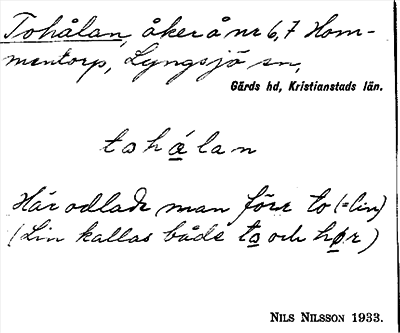 Tohålan, åker å nr 6,7 Hom-
mentorp, Lyngsjö sn,
Gärds hd, Kristianstads län.
tohålan
Här odlade man förr to (=lin)
(Lin kallas både to och hør)
NILS NILSSON 1933.